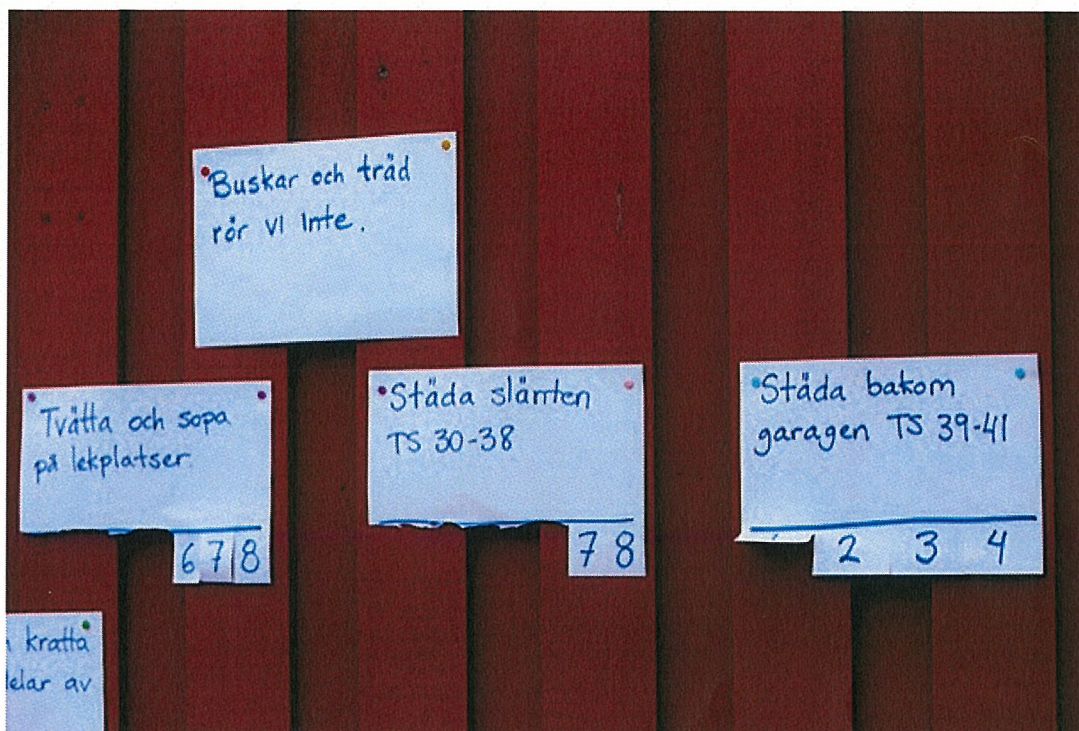 Buskar och träd
rör vi inte.
Tvätta och sopa
på lekplatser.
6 7 8
Städa slänten
TS 30-38
7 8
Städa bakom
garagen TS 39-41
2 3 4
kratta
delar av